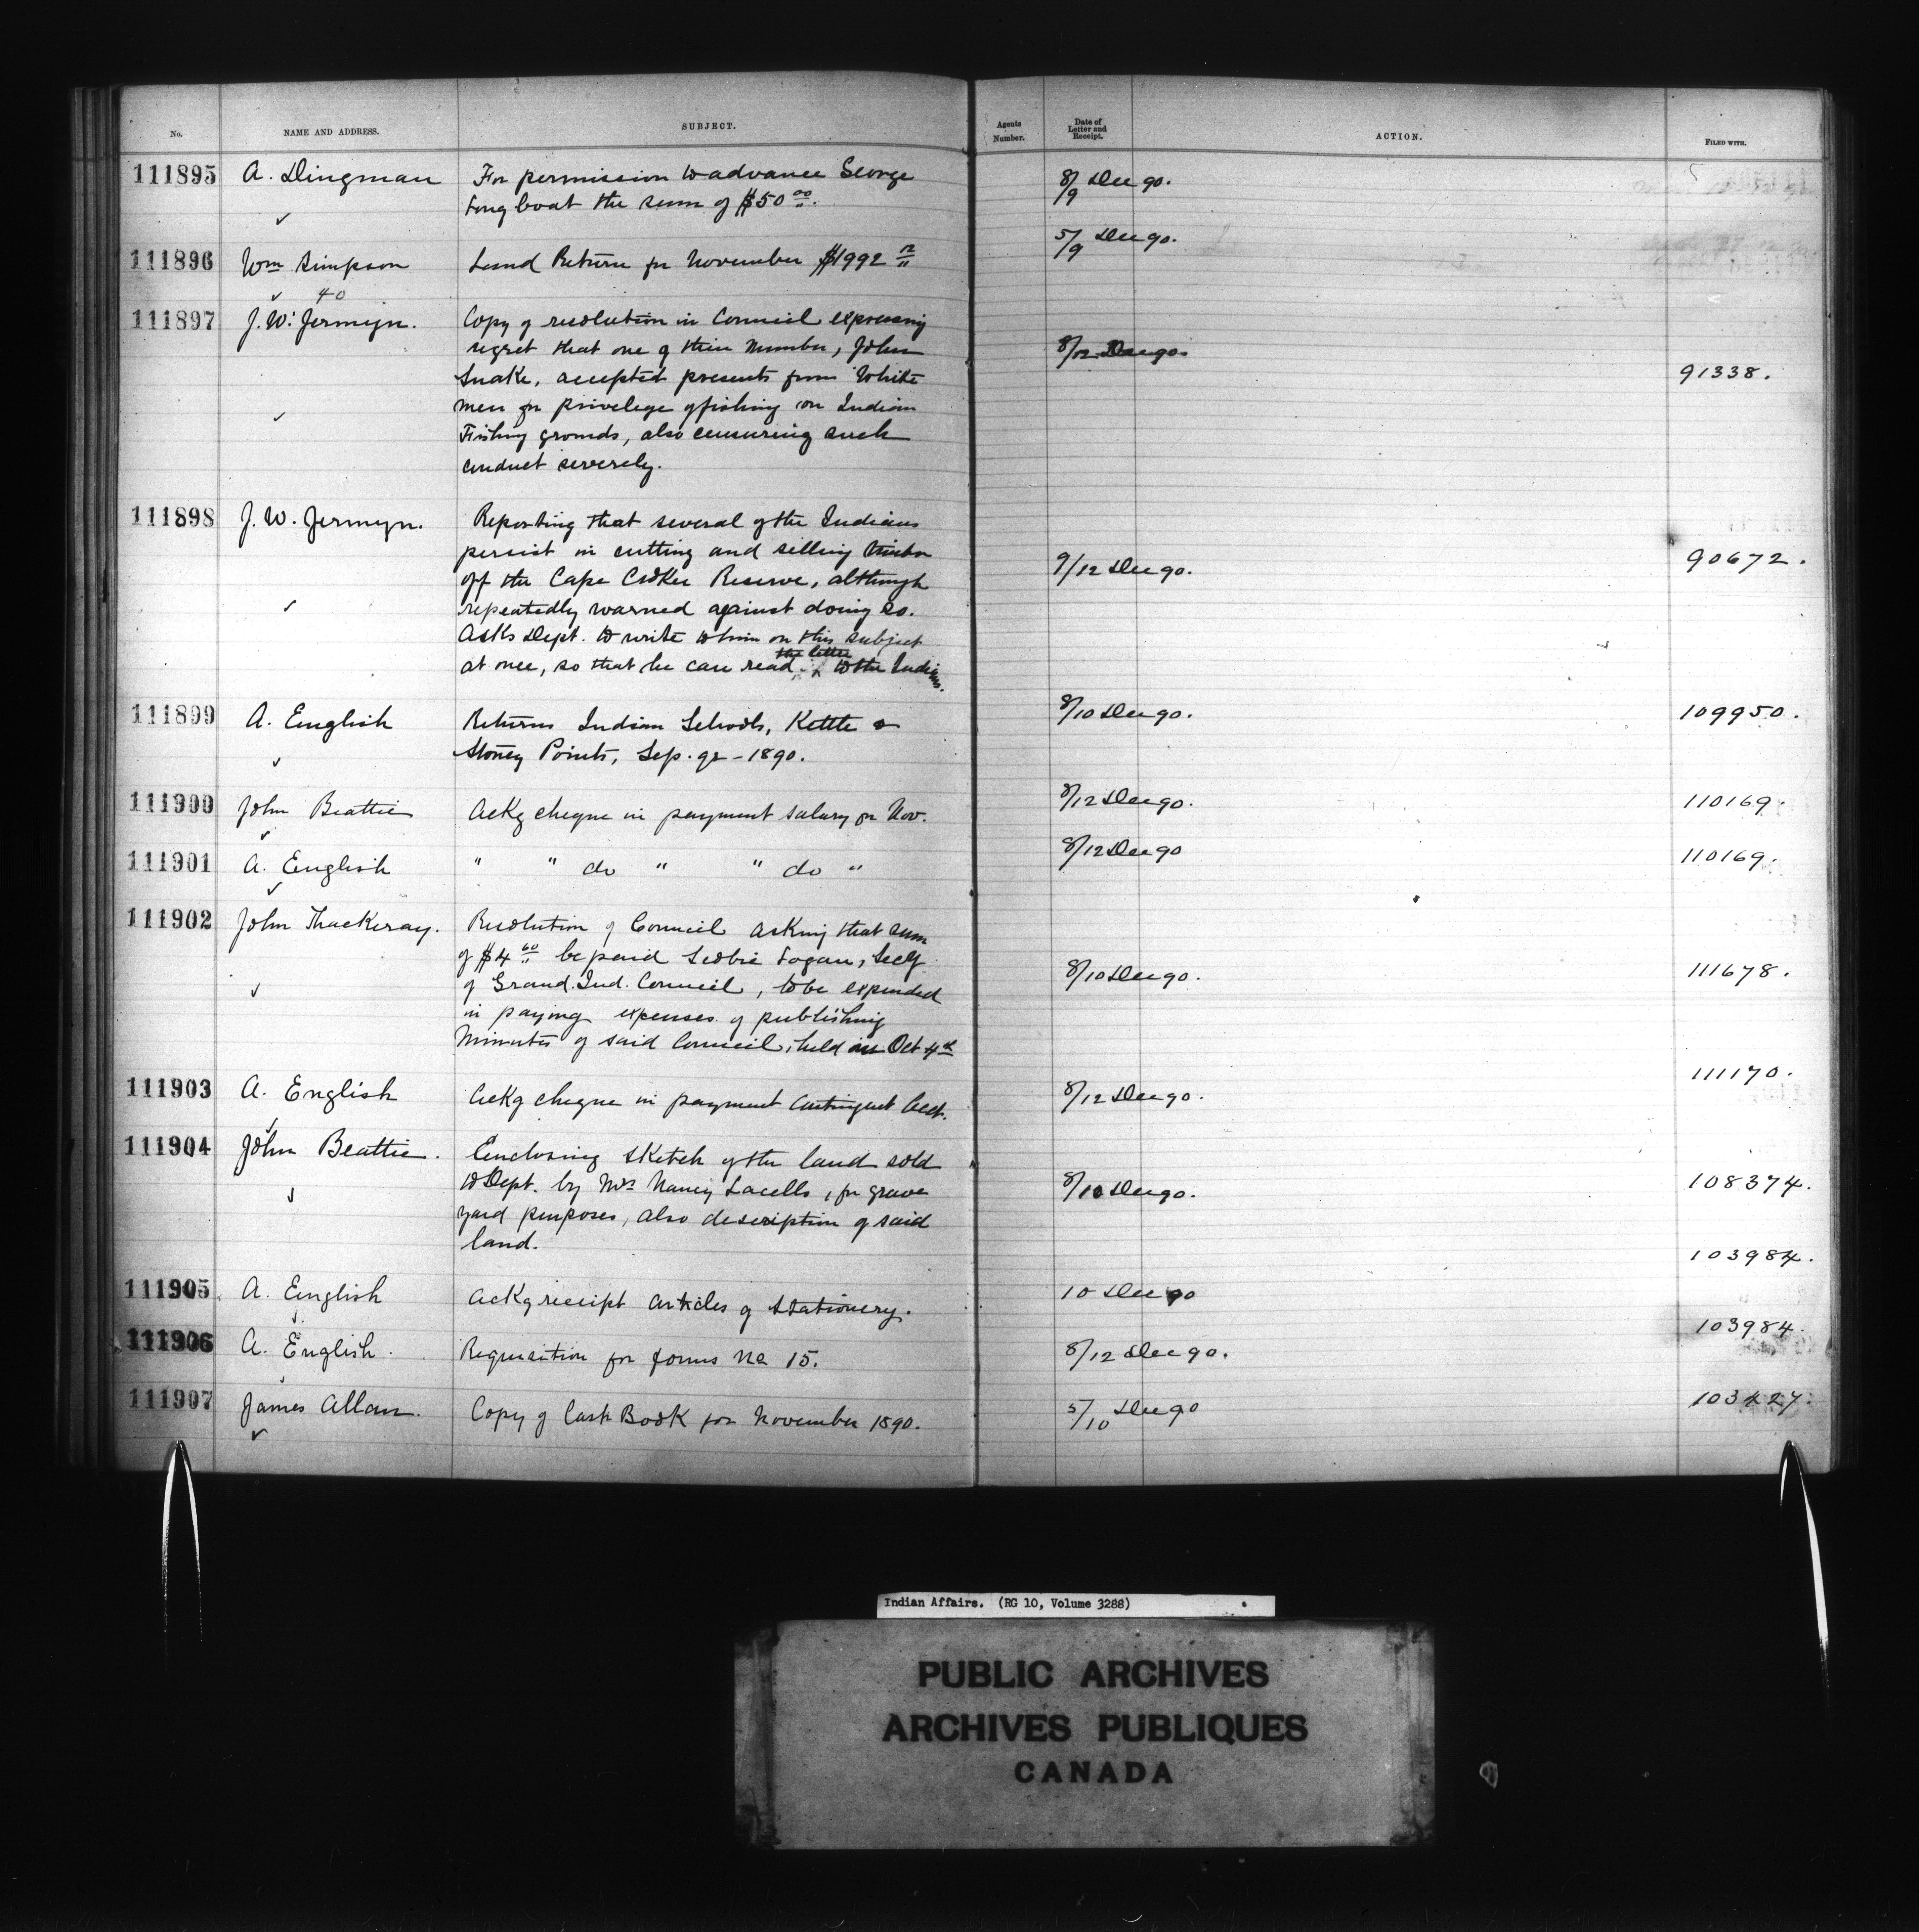 No. NAME AND ADDRESS. SUBJECT. Agents Number. Date of Letter and Receipt. ACTION. FILED WITH.
111895 A. Dingman For permission to advance George 8/9 Dec 90.
Longboat the sum of $50 00.
111896 Wm Simpson Land Return for November $1992 12 5/9 Dec 90.
40
111897 J. W. Jermyn. Copy of resolution in Council expressing
regret that one of their number, John 8/12 Dec 90.
Snake, accepted presents from White 91338.
men for privelege of fishing on Indian
Fishing grounds, also censuring such
conduct severely.
111898 J. W. Jermyn. Reporting that several of the Indians
persist in cutting and selling timber
off the Cape Croker Reserve, although 9/12 Dec 90. 90672.
repeatedly warned against doing so.
Asks Dept. to write to him on this subject
the letter
at once, so that he can read to the Indians.
111899 A. English Returns Indian Schools, Kettle & 8/10 Dec 90. 109950.
Stoney Points, Sep. qr - 1890.
111900 John Beattie Ackg cheque in payment salary for Nov. 8/12 Dec 90. 110169.
111901 A. English " " do " " do " 8/12 Dec 90 110169.
111902 John Thackeray. Resolution of Council asking that sum
of $4 60 be paid Scobie Logan, Secy
of Grand. Ind. Council, to be expended 8/10 Dec 90. 111678.
in paying expenses of publishing
Minutes of said Council, held in Oct 4th
111903 A. English Ackg cheque in payment Contingent Acct. 8/12 Dec 90. 111170.
111904 John Beattie. Enclosing sketch of the land sold
to Dept. by Mrs Nancy Lacells, for grave 8/10 Dec 90. 108374.
yard purposes, also description of said
land.
111905 A. English Ackg receipt articles of stationery. 10 Dec 90 103984.
111906 A. English. Requisition for forms No 15. 8/12 Dec 90. 103984.
111907 James Allan. Copy of Cash Book for November 1890. 5/10 Dec 90 103427.
Indian Affairs. (RG 10, Volume 3288)
PUBLIC ARCHIVES
ARCHIVES PUBLIQUES
CANADA